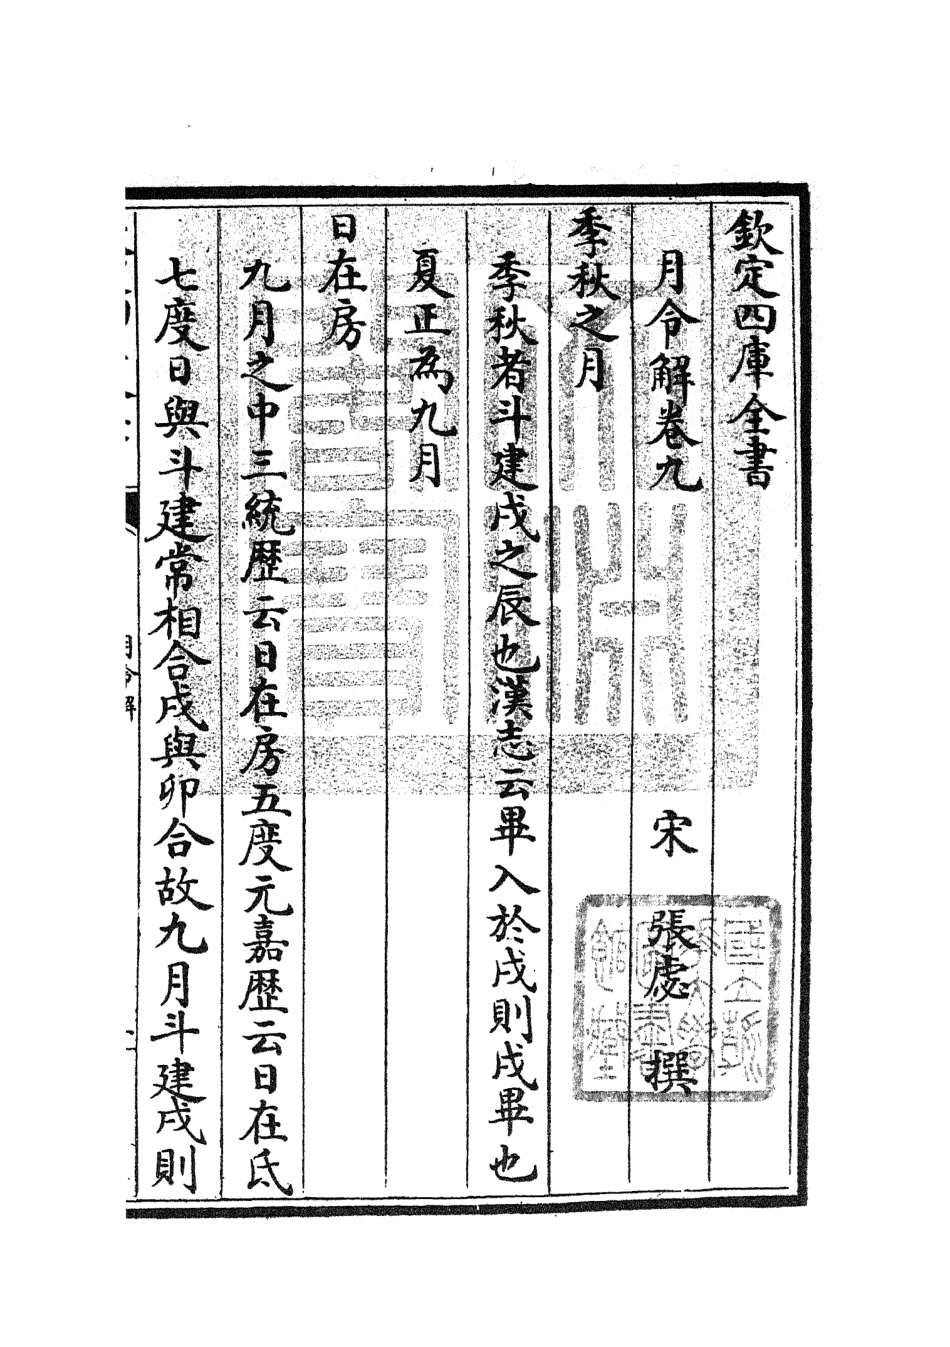 欽定四庫全書
月令解卷九
宋 張虙 撰
季秋之月
季秋者斗建戌之辰也漢志云畢入於戌則戌畢也
夏正為九月
日在房
九月之中三統歷云日在房五度元嘉歷云日在氐
七度日與斗建常相合戌與卯合故九月斗建戌則
月令解